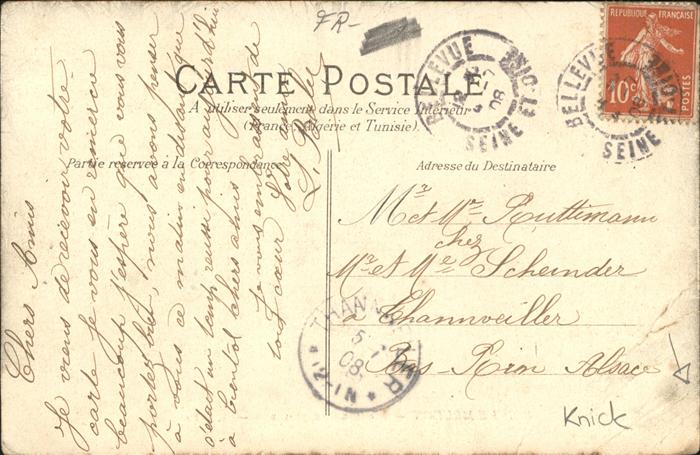 FR-
CARTE POSTALE
A utiliser seulement dans le Service Intérieur
(France, Algérie et Tunisie).
Partie réservée à la Correspondance
Adresse du Destinataire
REPUBLIQUE FRANÇAISE
10c
POSTES
BELLEVUE
SEINE-ET-OISE
08
BELLEVUE
SEINE-ET-OISE
Chers Amis
Je viens de recevoir votre
carte je vous en remercie
beaucoup j'espère que vous vous
portez bien, nous avons penser
à vous ce matin en disant que
s'était un temp reussi pour aujourd'hui
à bientôt chers amis
je vous embrasse de
tout cœur Votre amie
L.
Mr et Mme Ruttimann
chez
Mr et Mme Scheinder
à Thannveiller
Bas-Rin Alsace
THANNWEILER
5
08
12-1N
Knick